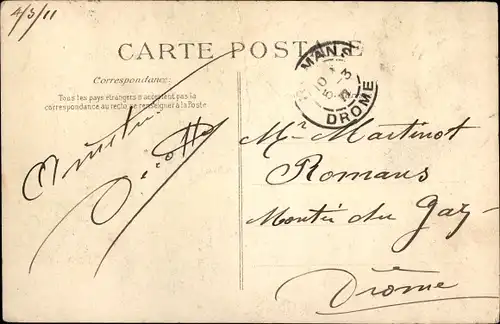 4/3/11
CARTE POSTALE
Correspondance
Tous les pays étrangers n'acceptent pas la
correspondance au recto se renseigner à la Poste
MANS
10
5-3
DROME
Mr Martinot
Romans
Montée du Gaz
Drôme